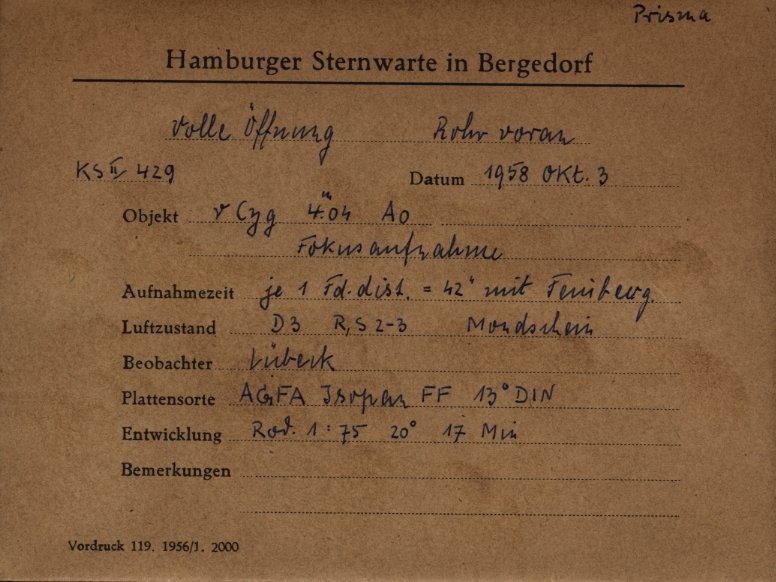 Prisma
Hamburger Sternwarte in Bergedorf
Volle Öffnung Rohr voran
KS II 429 Datum 1958 Okt. 3
Objekt ν Cyg 4.ᵐ04 A0
Fokusaufnahme
Aufnahmezeit je 1 Fd. dist. = 42" mit Feinbewg.
Luftzustand D3 R,S 2-3 Mondschein
Beobachter Lübeck
Plattensorte AGFA Isopan FF 13° DIN
Entwicklung Rod. 1:75 20° 17 Min
Bemerkungen
Vordruck 119. 1956/1. 2000